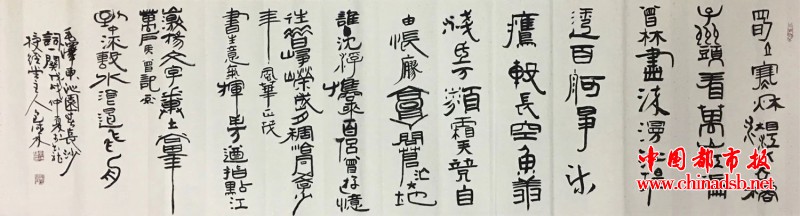 獨立寒秋湘江北去橘
子洲頭看萬山紅遍
層林盡染漫江碧
透百舸爭流
鷹擊長空魚翔
淺底萬類霜天競自
由悵寥廓問蒼茫大地
誰主沉浮攜來百侶曾游憶
往昔崢嶸歲月稠恰同學少
年風華正茂
書生意氣揮斥方遒指點江
山激揚文字糞土當年
萬戶侯曾記否
到中流擊水浪遏飛舟
毛澤東沁園春長沙
詞一闋戊戌仲夏
授經堂主人
中国都市报
www.chinadsb.net